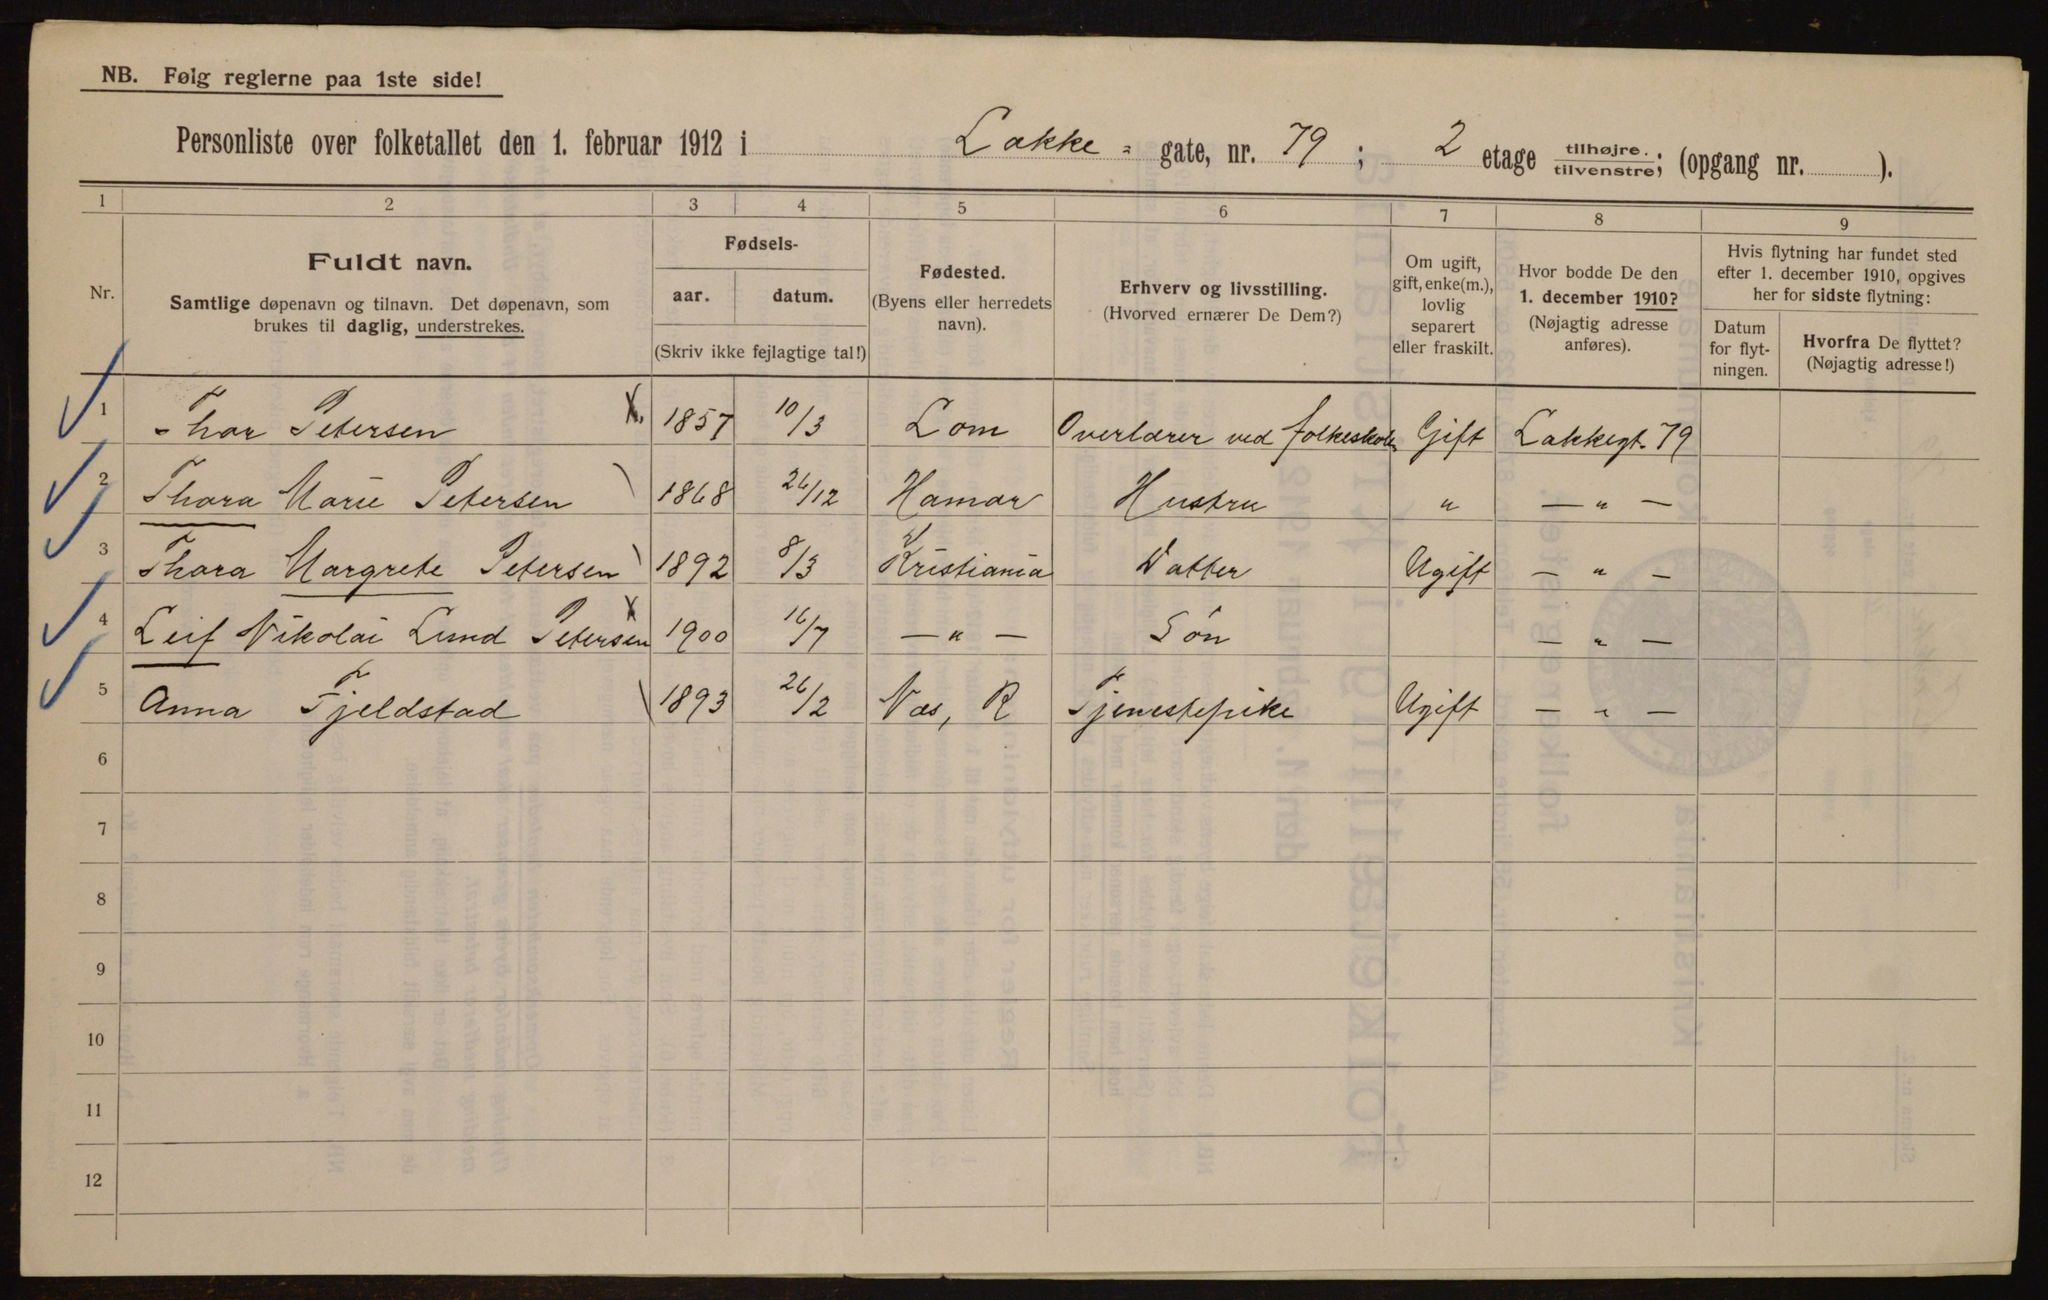 NB. Følg reglerne paa 1ste side!
Personliste over folketallet den 1. februar 1912 i Lakke- gate, nr. 79; 2 etage tilhøjre. tilvenstre; (opgang nr. ).
1 2 3 4 5 6 7 8 9
Nr.
Fuldt navn.
Samtlige døpenavn og tilnavn. Det døpenavn, som
brukes til daglig, understrekes.
Fødsels-
aar. datum.
(Skriv ikke fejlagtige tal!)
Fødested.
(Byens eller herredets
navn).
Erhverv og livsstilling.
(Hvorved ernærer De Dem?)
Om ugift,
gift, enke(m.),
lovlig
separert
eller fraskilt.
Hvor bodde De den
1. december 1910?
(Nøjagtig adresse
anføres).
Hvis flytning har fundet sted
efter 1. december 1910, opgives
her for sidste flytning:
Datum
for flyt-
ningen.
Hvorfra De flyttet?
(Nøjagtig adresse!)
1 Thor Petersen X. 1857 10/3 Lom Overlærer ved folkeskolen Gift Lakkegt. 79
2 Thora Marie Petersen 1868 26/12 Hamar Hustru " — " —
3 Thora Margrete Petersen 1892 8/3 Kristiania Datter Ugift — " —
4 Leif Nikolai Lund Petersen X 1900 16/7 — " — Søn — " —
5 Anna Fjeldstad 1893 26/2 Næs, R Tjenestepike Ugift — " —
6
7
8
9
10
11
12